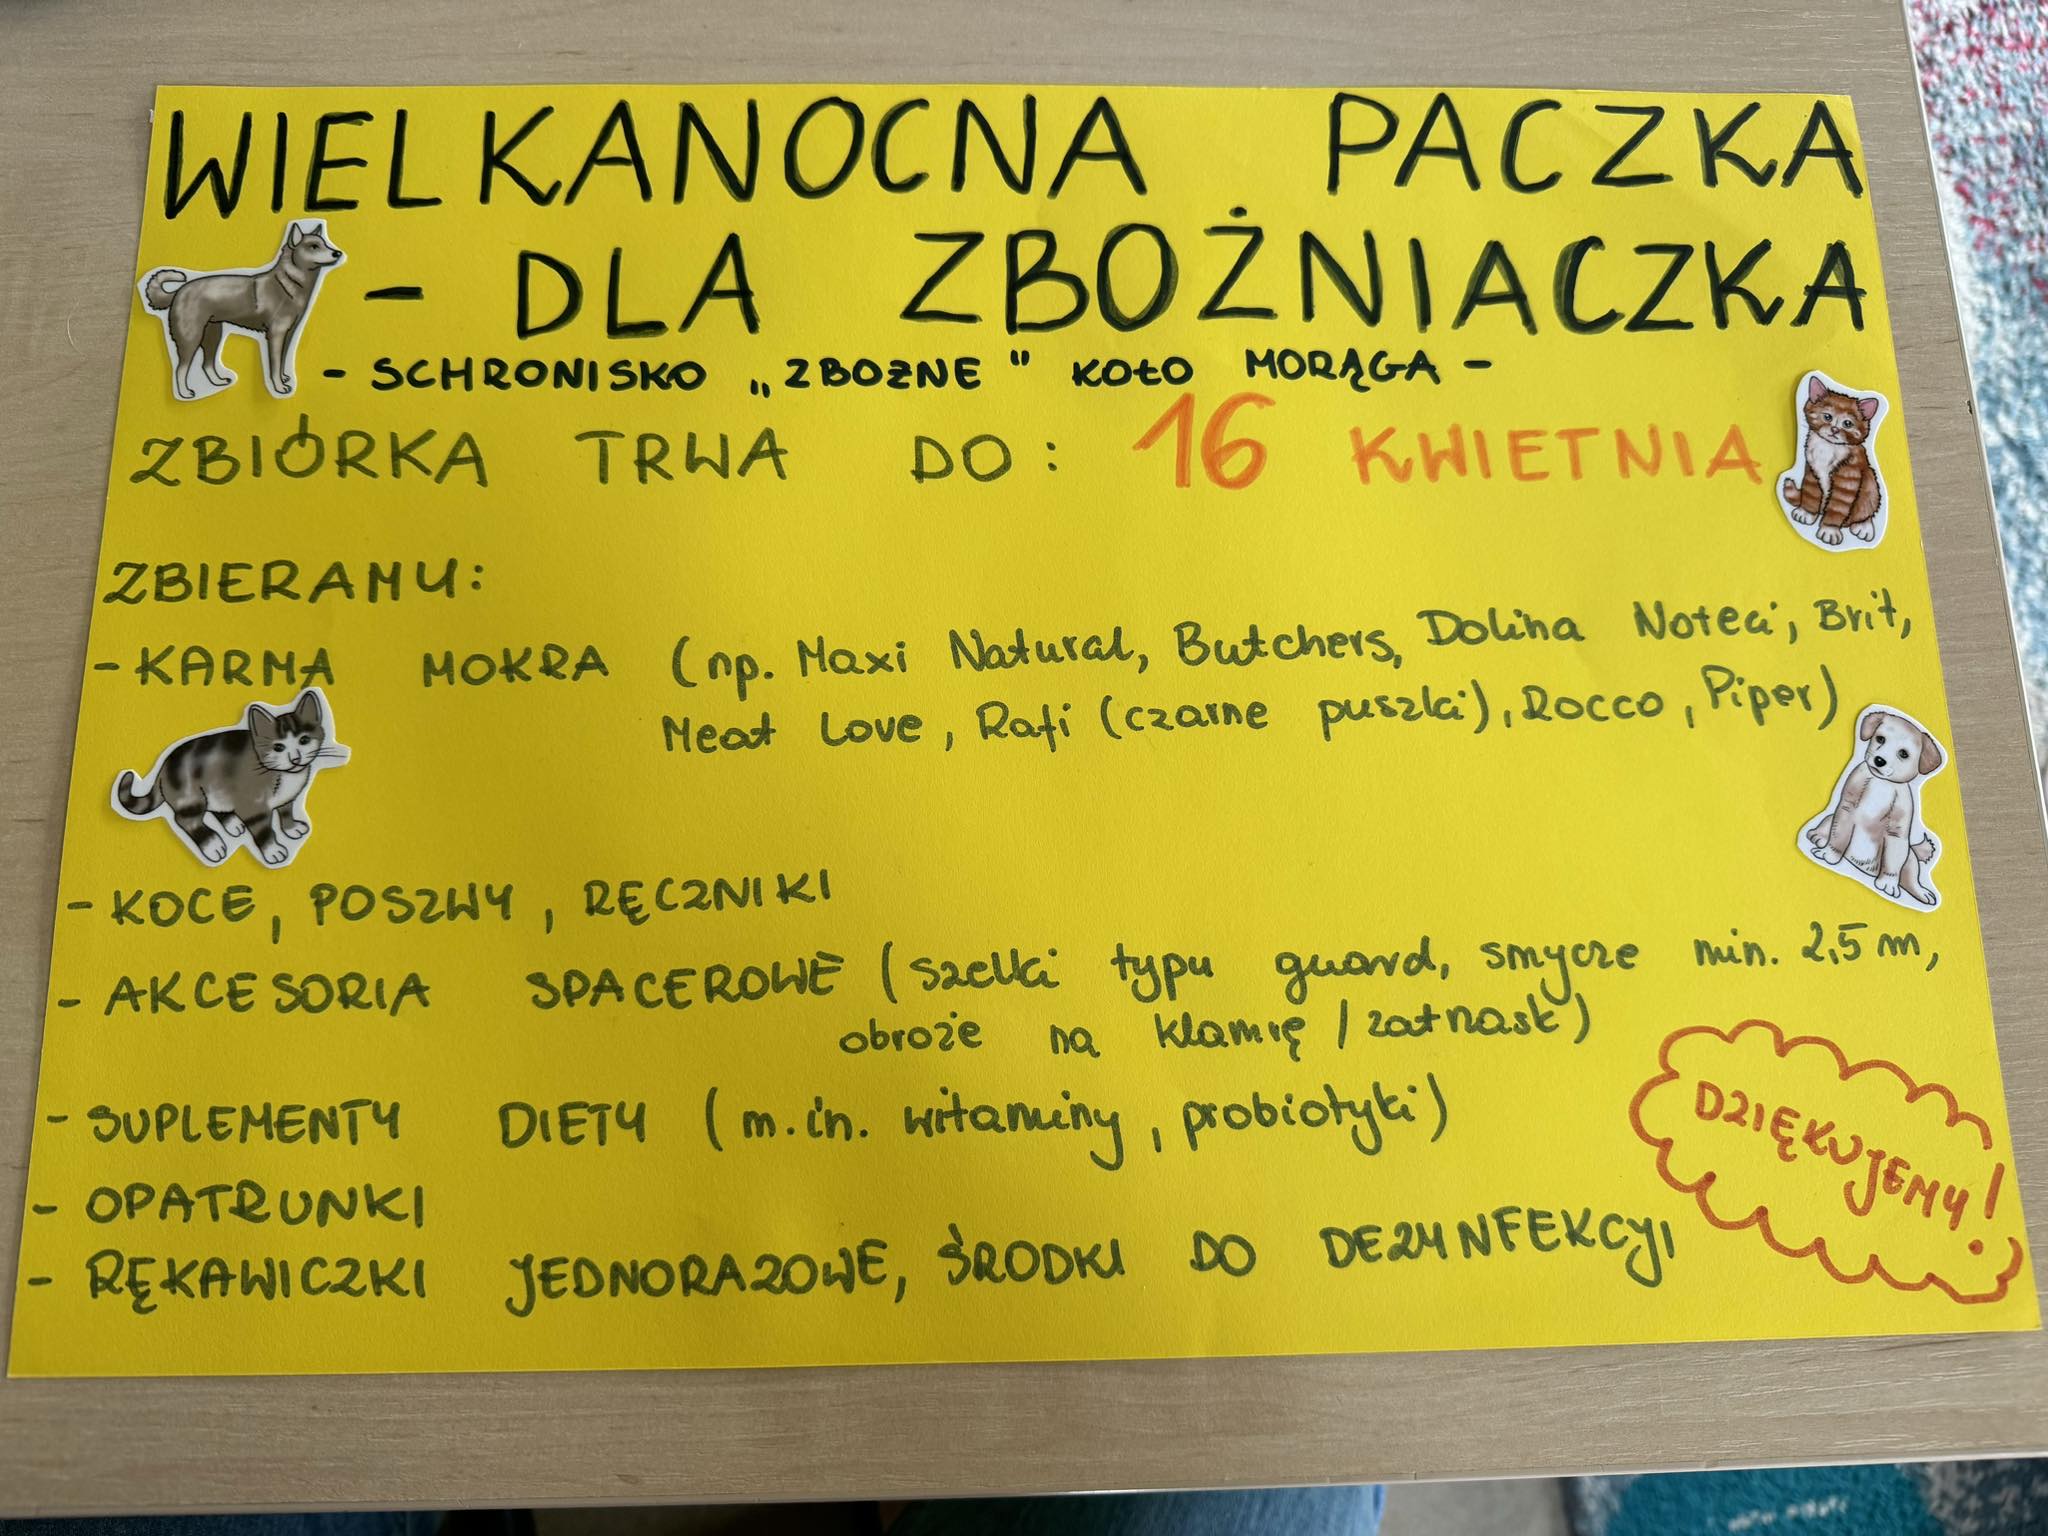 WIELKANOCNA PACZKA
- DLA ZBOŻNIACZKA
- SCHRONISKO „ZBOŻNE" KOŁO MORĄGA -
ZBIÓRKA TRWA DO: 16 KWIETNIA
ZBIERAMY:
- KARMA MOKRA (np. Maxi Natural, Butchers, Dolina Noteci, Brit,
Meat Love, Rafi (czarne puszki), Rocco, Piper)
- KOCE, POSZWY, RĘCZNIKI
- AKCESORIA SPACEROWE (szelki typu guard, smycze min. 2,5 m,
obroże na klamrę / zatrzask)
- SUPLEMENTY DIETY (m.in. witaminy, probiotyki)
- OPATRUNKI
- RĘKAWICZKI JEDNORAZOWE, ŚRODKI DO DEZYNFEKCJI
DZIĘKUJEMY!